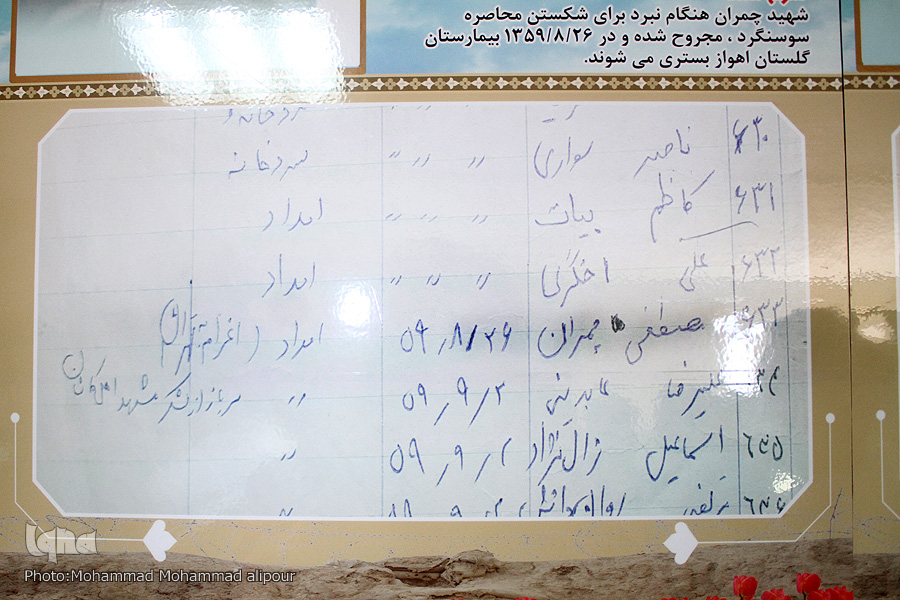 شهید چمران هنگام نبرد برای شکستن محاصره
سوسنگرد ، مجروح شده و در ۱۳۵۹/۸/۲۶ بیمارستان
گلستان اهواز بستری می شوند.
۶۳۰ ناصر سواری 〃 〃 〃 سردخانه
۶۳۱ کاظم بیات 〃 〃 〃 امداد
۶۳۲ علی اخگری 〃 〃 〃 امداد
۶۳۳ مصطفی چمران ۵۹/۸/۲۶ امداد (اعزام تهران)
علیرضا عابدینی ۵۹/۹/۲ 〃 سرباز لشکر مشهد
۶۳۵ اسماعیل ژال نژاد ۵۹/۹/۲ 〃
۶۳۶
iqna
Photo:Mohammad Mohammad alipour